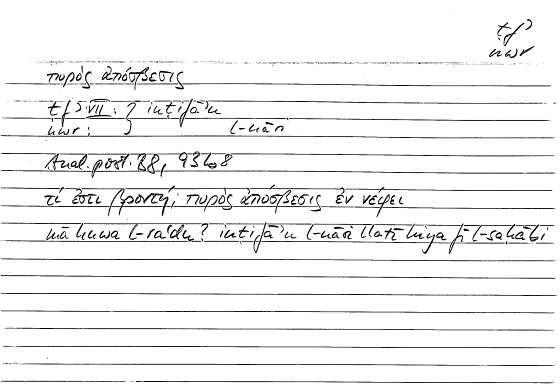 ṭfʾ
nwr
πυρὸς ἀπόσβεσις
ṭfʾ VII : } intifāʾu
nwr : } l-nāri
Anal. post. B8, 93b8
τί ἐστι βροντή; πυρὸς ἀπόσβεσις ἐν νέφει
mā huwa l-raʿdu? intifāʾu l-nāri llatī hiya fī l-saḥābi